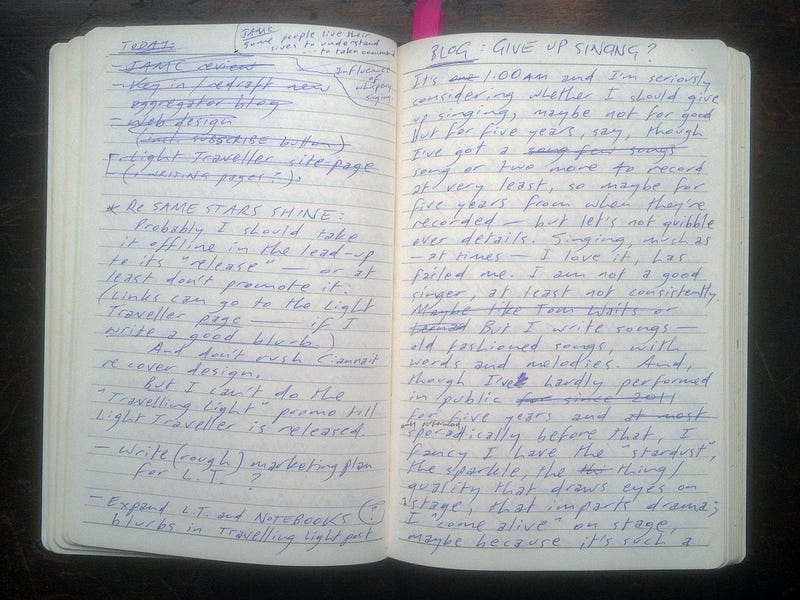 TODAY:
JAMC
Some people live their
lives to understand
... to take command
Influence
of
whispery
singing
- JAMC review
- Key in/redraft new
aggregator blog
- Web design
(incl. SUBSCRIBE button)
Light Traveller site page
(+ WRITING pages?)
* Re SAME STARS SHINE:
Probably I should take
it offline in the lead-up
to its "release" — or at
least don't promote it.
(Links can go to the Light
Traveller page — if I
write a good blurb)
And don't rush Ciannait
re cover design.
But I can't do the
"Travelling Light" promo till
Light Traveller is released.
- Write (rough) marketing plan
for L.T. ?
- Expand L.T. and NOTEBOOKS ?
blurbs in Travelling Light post
BLOG: GIVE UP SINGING?
It's one 1.00 AM and I'm seriously
considering whether I should give
up singing, maybe not for good
but for five years, say, though
I've got a song few songs
song or two more to record
at very least, so maybe for
five years from when they're
recorded — but let's not quibble
over details. Singing, much as
— at times — I love it, has
failed me. I am not a good
singer, at least not consistently.
Maybe like Tom Waits or
But I write songs —
old fashioned songs, with
words and melodies. And,
though I've hardly performed
in public for since 2011
for five years and at most
sporadically before that, I
fancy I have the "stardust",
the sparkle, the thi thing/
quality that draws eyes on
stage, that imparts drama;
I "come alive" on stage,
maybe because it's such a